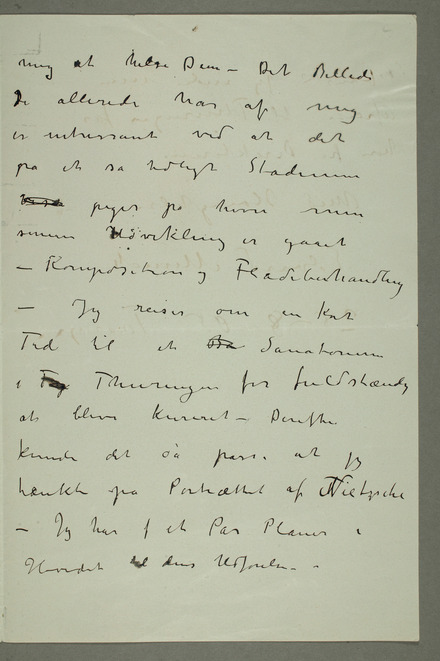 mig at hilse Dem – Det Billede
De allerede har af mig
er intressant ved at det
på et så tidligt Stadium
peger på hvor min
senere Udvikling er gaaet
– Komposition og Fladebehandling
– Jeg reiser om en kort
Tid til et Sanatorium
i Thüringen for fuldstændig
at blive kureret – Derefter
kunde det så passe at jeg
tænkte på Portrættet af Nietzsche
– Jeg har jo et Par Planer i
Hovedet til dens Udførelse –